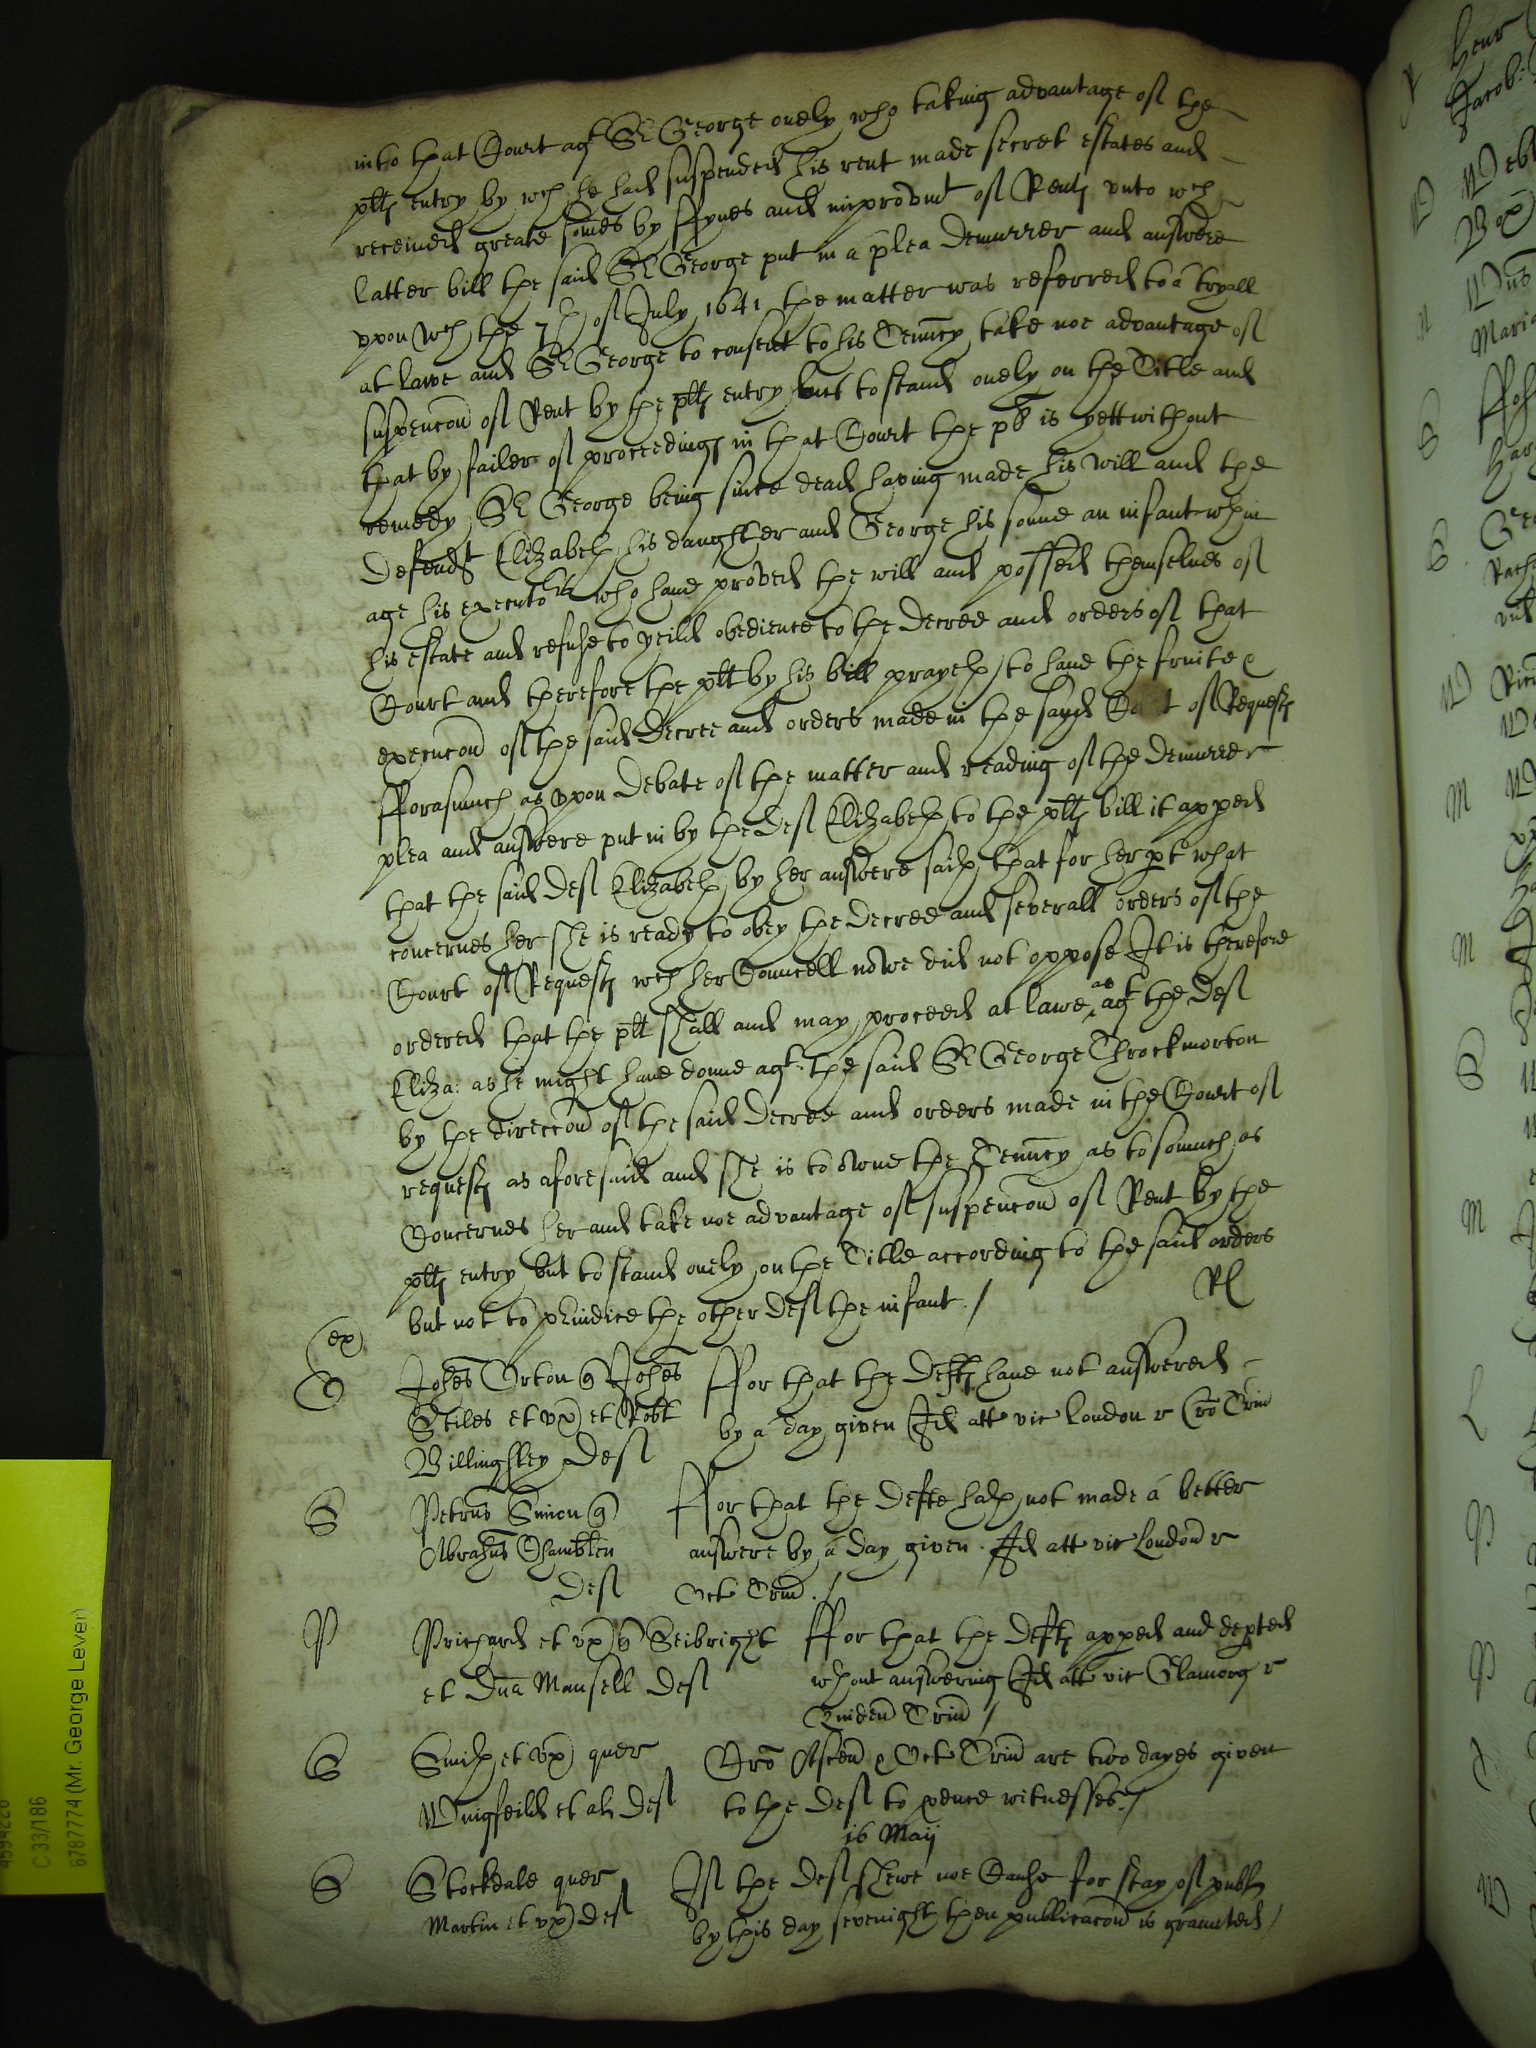 into that Court agt Sr George onely who taking advantage of the
plts entry by wch he had suspended his rent made secret estates and
received greate somes by ffynes and improvmt of Rents vnto wch
latter bill the said Sr George put in a plea demurrer and answere
vpon wch the 7th of July 1641 the matter was referred to a tryall
at lawe and Sr George to consent to his Tenncy take noe advantage of
suspencon of Rent by the plts entry but to stand onely on the Title and
that by failer of proceedings in that Court the plt is yett without
remedy Sr George being since dead having made his will and the
Defendt Elizabeth his daughter and George his sonne an infant wthin
age his executors who have proved the will and possed themselves of
his estate and refuse to yeild obedience to the decree and orders of that
Court and therefore the plt by his bill prayeth to have the fruite &
execucon of the said decree and orders made in the sayd Co t of Requests
fforasmuch as vpon debate of the matter and reading of the demurrer
plea and answere put in by the Deft Elizabeth to the plts bill it appeed
that the said Deft Elizabeth by her answere saith that for her pt what
concernes her she is ready to obey the decree and severall orders of the
Court of Requests wch her Councell nowe did not oppose It is therefore
ordered that the plt shall and may proceed at lawe as agt the Deft
Eliza: as he might have donne agt the said Sr George Throckmorton
by the direccon of the said decree and orders made in the Court of
requests as aforesaid and she is to owne the Tenncy as to somuch as
Concernes her and take noe advantage of suspencon of Rent by the
plts entry but to stand onely on the Title according to the said orders
but not to preiudice the other Deft the infant /
Rl
ex
O
Johes Orton q Johes
Stiles et vx et Robt
Billingsley Deft
ffor that the Defts have not answered
by a day given Id att vic London r Cro Trin
S
Petrus Simon q
Abrahus Chamblen
Deft
ffor that the Defte hath not made a better
answere by a day given Id att vic London r
Oct Trin /
P
Prichard et vx q Seibright
et Dna Mansell Deft
ffor that the Defts appeed and depted
wthout answering Id att vic Glamorg r
Quiden Trin /
S
Smith et vx quer
Wingfeild et al Deft
Cro Ascen & Oct Trin are two dayes given
to the Deft to pduce witnesses /
16 Maij
S
Stockdale quer
Martin et vx deft
If the Deft shewe noe Cause for stay of publn
by this day sevenight then publicacon is graunted /
4594220
C 33/186
6787774 (Mr. George Lever)